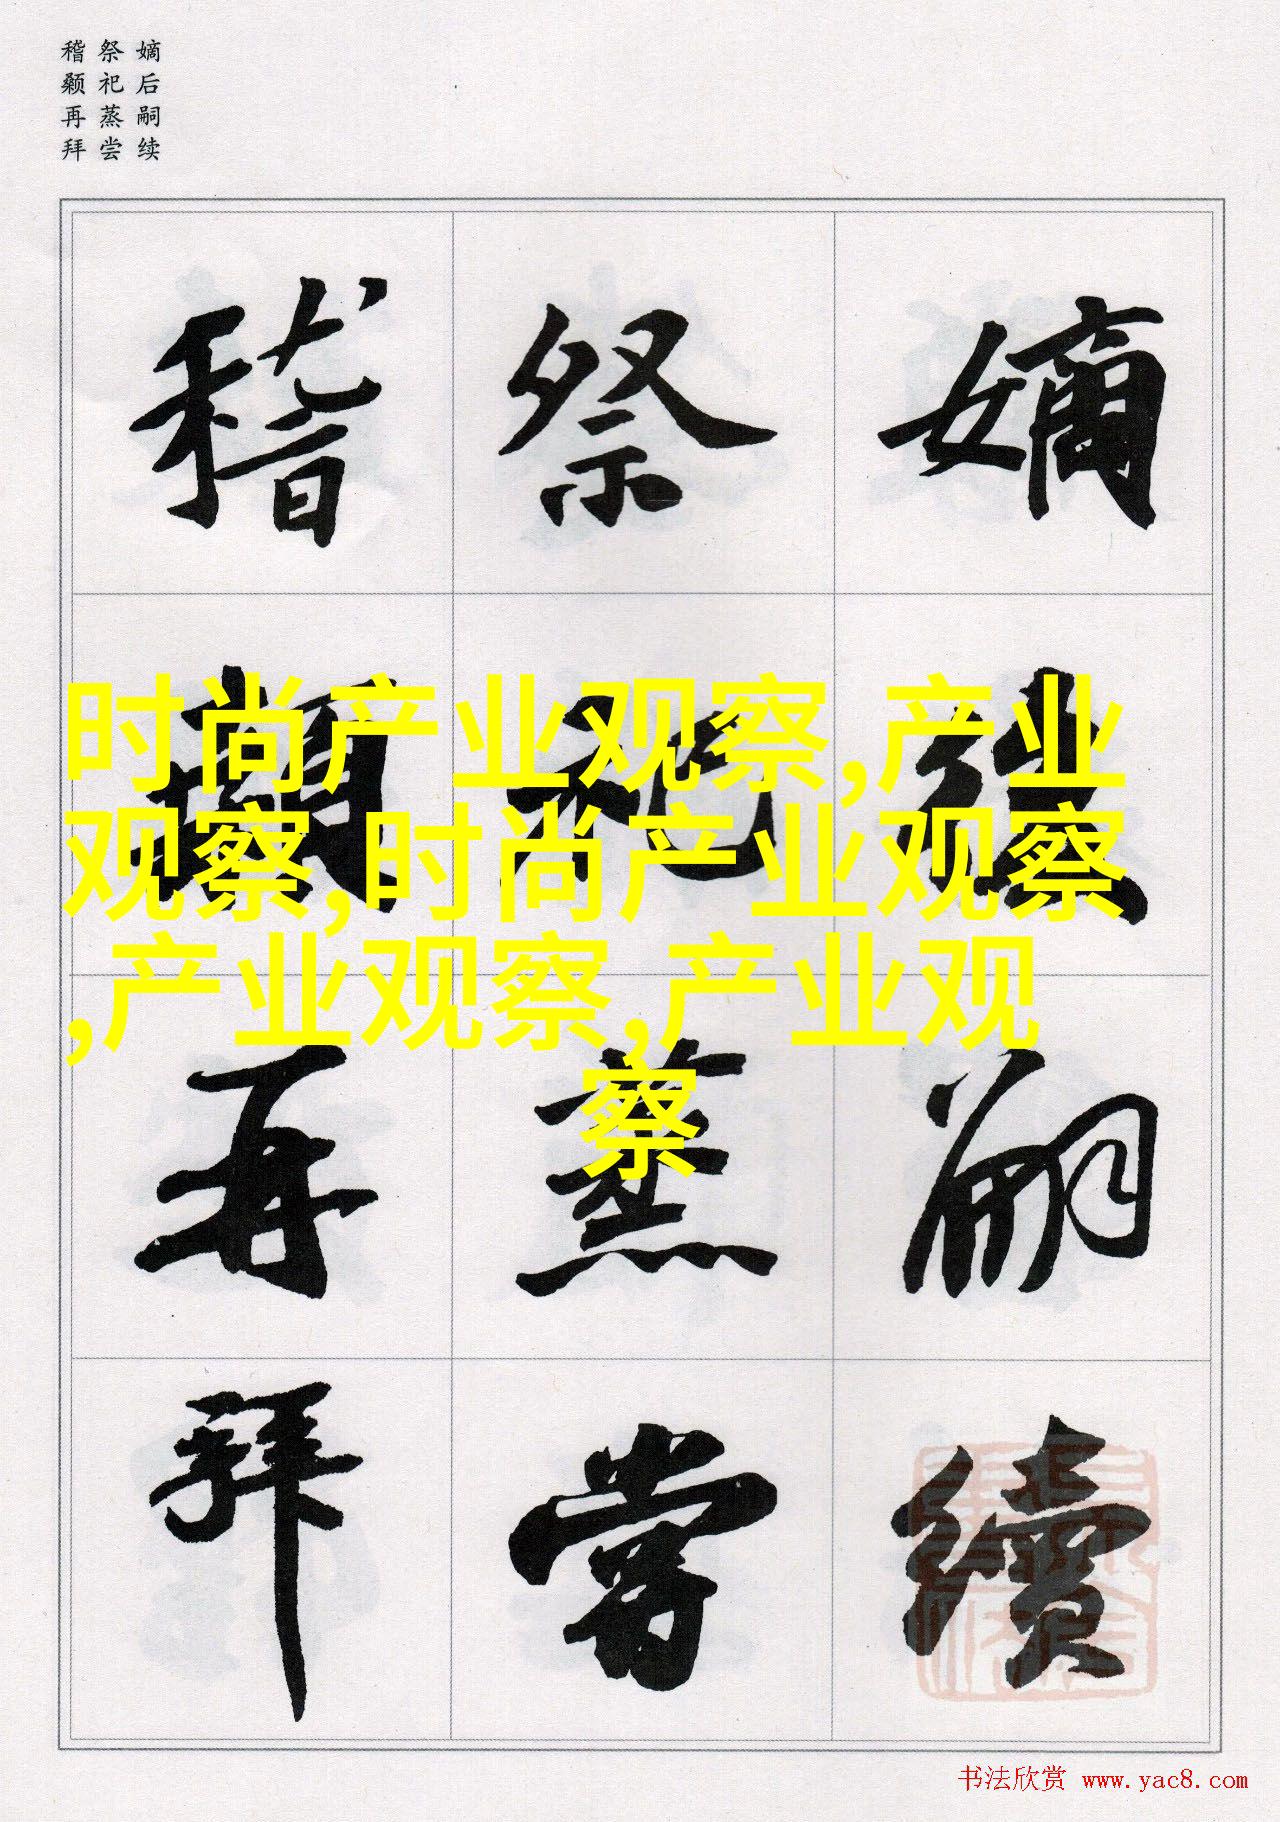 嫡后嗣续
祭祀蒸尝
稽颡再拜
嫡后嗣續
祭祀蒸嘗
稽顙再拜
时尚产业观察,产业
观察,时尚产业观察
,产业观察,产业观
察
书法欣赏 www.yac8.com